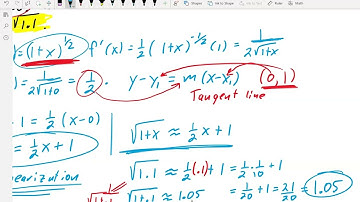 √1.1.
= (1+x)^{1/2} f'(x) = 1/2 (1+x)^{-1/2} (1) = 1/(2√(1+x))
) = 1/(2√(1+0)) = 1/2. y-y₁ = m(x-x₁) (0,1)
Tangent line
-1 = 1/2 (x-0)
1/2 x+1
√(1+x) ≈ 1/2 x + 1
√1.1 ≈ 1/2 (.1) + 1 = 1/2 · 1/10 + 1
√(1+.1) ≈ 1.05 = 1/20 + 1 = 21/20 = 1.05